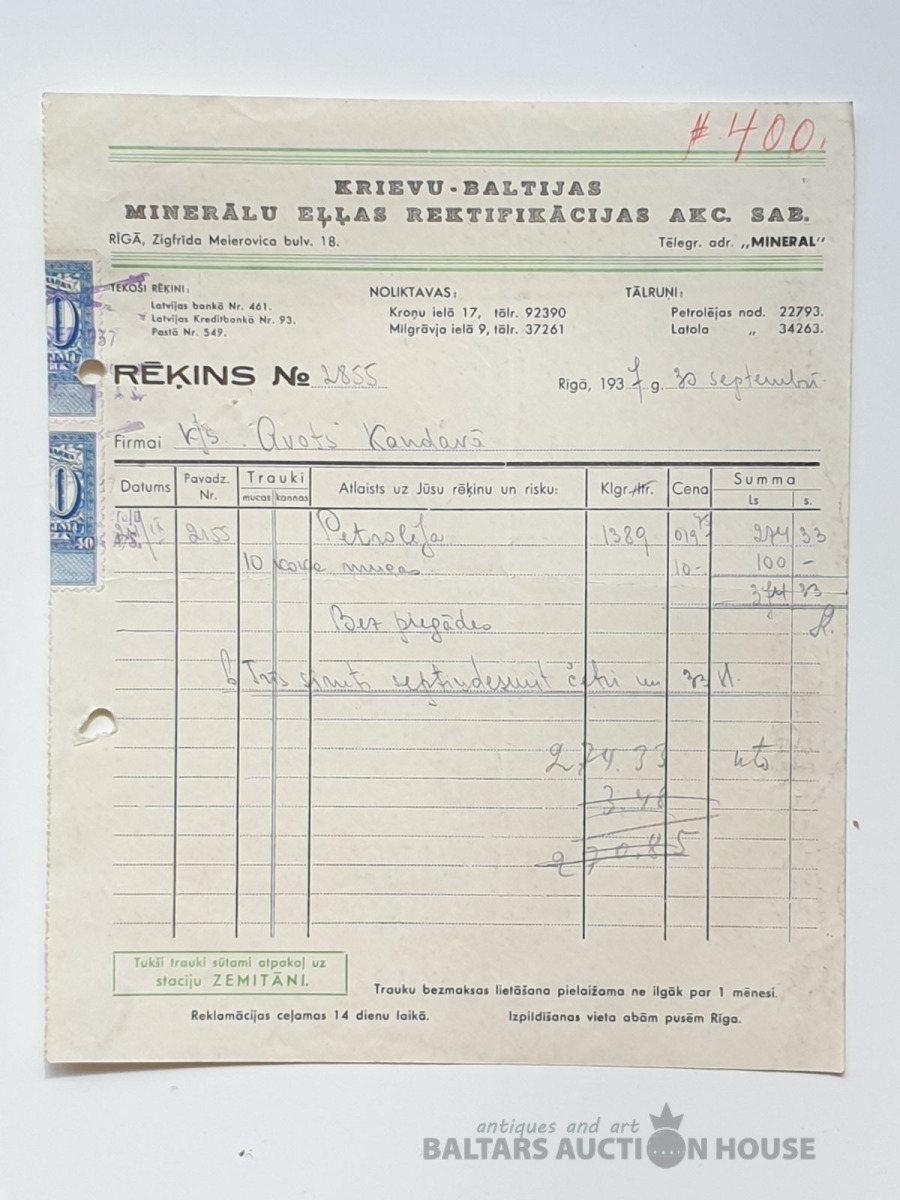 # 400.
KRIEVU-BALTIJAS
MINERĀLU EĻĻAS REKTIFIKĀCIJAS AKC. SAB.
RĪGĀ, Zigfrīda Meierovica bulv. 18. Tēlegr. adr. „MINERAL"
TEKOŠI RĒĶINI: NOLIKTAVAS: TĀLRUŅI:
Latvijas bankā Nr. 461. Kroņu ielā 17, tālr. 92390 Petrolējas nod. 22793.
Latvijas Kreditbankā Nr. 93. Milgrāvja ielā 9, tālr. 37261 Latola „ 34263.
Pastā Nr. 549.
RĒĶINS № 2855 Rīgā, 1937 g. 30 septembrī
Firmai k/s. Avots Kandavā
Datums Pavadz. Nr. Trauki mucas kannas Atlaists uz Jūsu rēķinu un risku: Klgr./ltr. Cena Summa Ls s.
2155 Petroleja 1389 019 75 274 33
10 mucas 10- 100 -
374 33
Bez piegādes
Trīs simts septiņdesmit četri un 33
274.33
3.48
270.85
Tukši trauki sūtami atpakaļ uz
staciju ZEMITĀNI.
Trauku bezmaksas lietāšana pielaižama ne ilgāk par 1 mēnesi.
Reklamācijas ceļamas 14 dienu laikā. Izpildīšanas vieta abām pusēm Rīga.
antiques and art
BALTARS AUCTION HOUSE